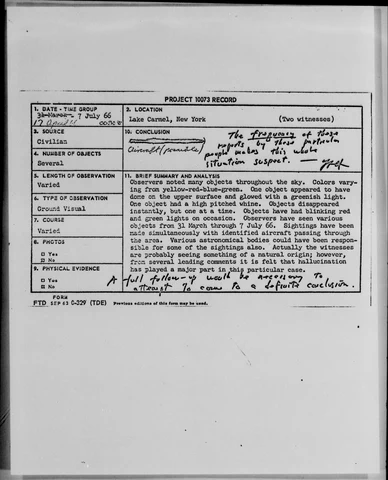 PROJECT 10073 RECORD
1. DATE - TIME GROUP
31 March - 7 July 66
17 April
2. LOCATION
Lake Carmel, New York (Two witnesses)
3. SOURCE
Civilian
10. CONCLUSION
Aircraft (possible)
The frequency of these
reports by these particular
people makes this whole
situation suspect.
4. NUMBER OF OBJECTS
Several
5. LENGTH OF OBSERVATION
Varied
6. TYPE OF OBSERVATION
Ground Visual
7. COURSE
Varied
8. PHOTOS
□ Yes
□ No
9. PHYSICAL EVIDENCE
□ Yes
□ No
11. BRIEF SUMMARY AND ANALYSIS
Observers noted many objects throughout the sky. Colors vary-
ing from yellow-red-blue-green. One object appeared to have
dome on the upper surface and glowed with a greenish light.
One object had a high pitched whine. Objects disappeared
instantly, but one at a time. Objects have had blinking red
and green lights on occasion. Observers have seen various
objects from 31 March through 7 July 66. Sightings have been
made simultaneously with identified aircraft passing through
the area. Various astronomical bodies could have been respon-
sible for some of the sightings also. Actually the witnesses
are probably seeing something of a natural origin; however,
from several leading comments it is felt that hallucination
has played a major part in this particular case.
A full follow-up would be necessary to
attempt to come to a definite conclusion.
FORM
FTD SEP 63 0-329 (TDE) Previous editions of this form may be used.